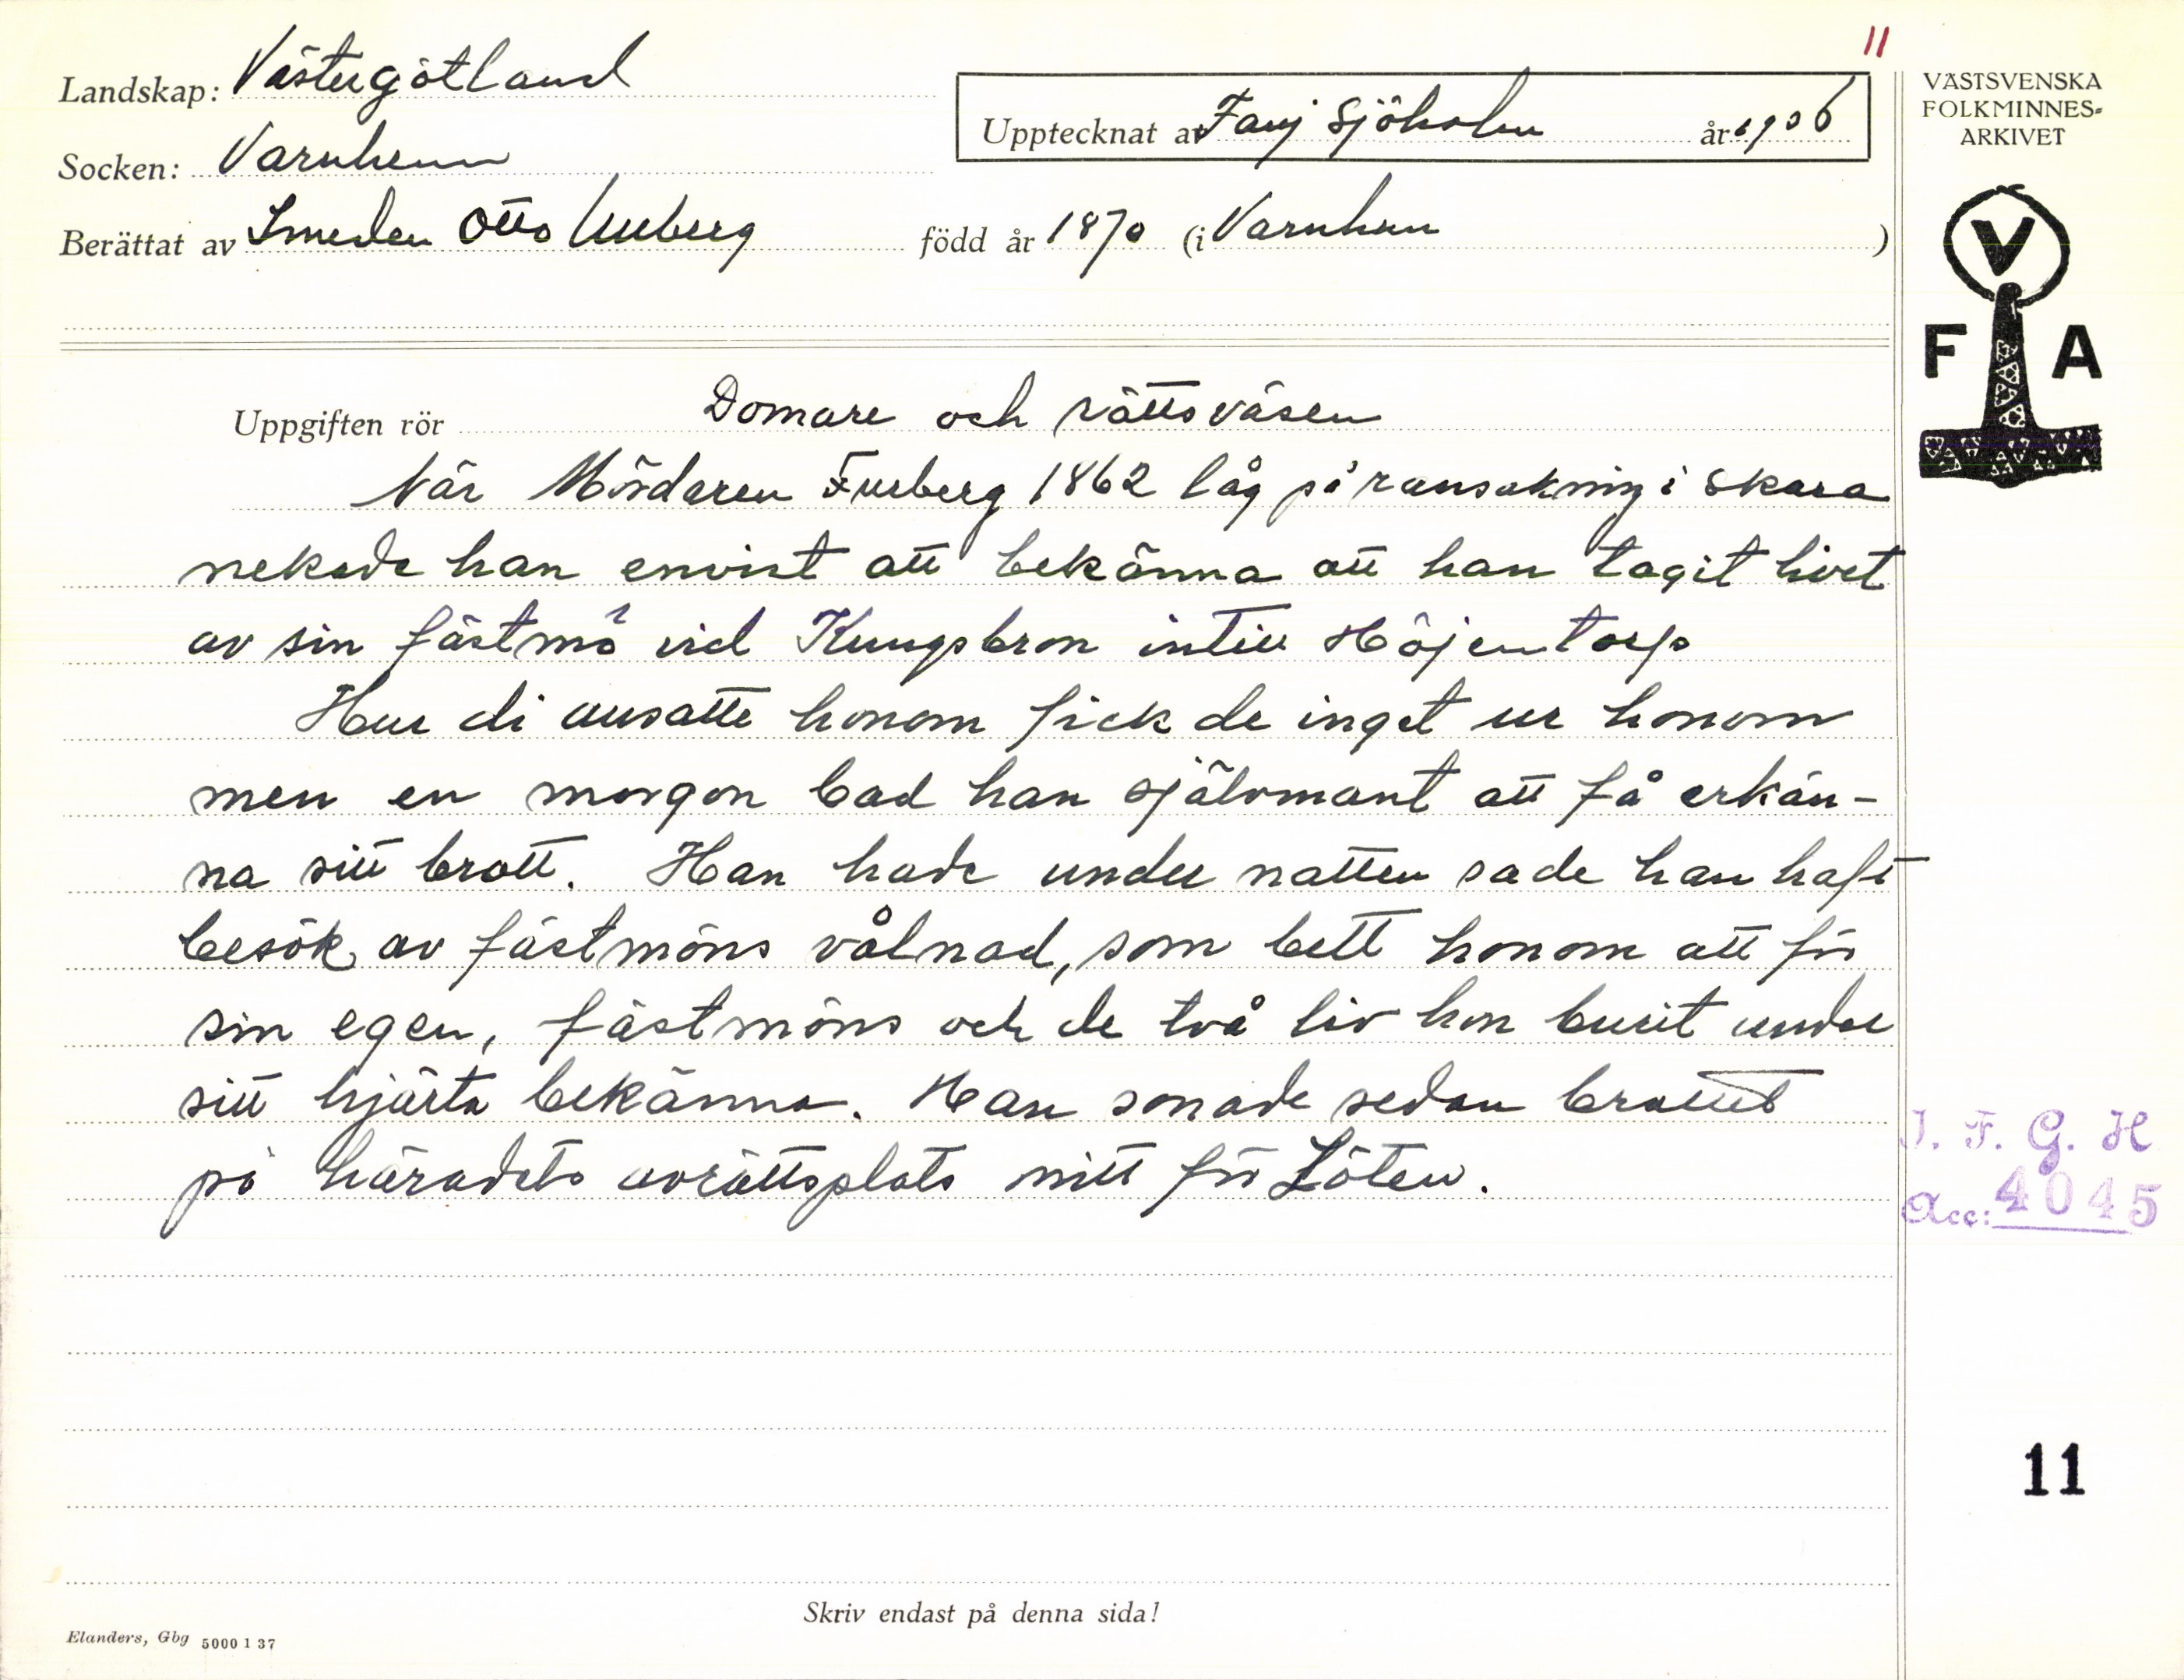 11
Landskap: Västergötland
Upptecknat av Fanj Sjöholm år 1936
VÄSTSVENSKA
FOLKMINNES-
ARKIVET
Socken: Varnhem
Berättat av Smeden Otto född år 1870 (i Varnhem )
V
F A
Uppgiften rör Domare och rättsväsen
När Mördaren Furberg 1862 låg på ransakning i Skara
nekade han envist att bekänna att han tagit livet
av sin fästmö vid Kungsbron intill Höjentorp
Hur di ansatte honom fick de inget ur honom
men en morgon bad han självmant att få erkän-
na sitt brott. Han hade under natten sade han haft
besök av fästmöns vålnad, som bett honom att för
sin egen, fästmöns och de två liv hon burit under
sitt hjärta bekänna. Han sonade sedan brottet
på häradets avrättsplats mitt för Löten.
I. F. G. H
Acc: 4045
11
Skriv endast på denna sida!
Elanders, Gbg 5000 1 37